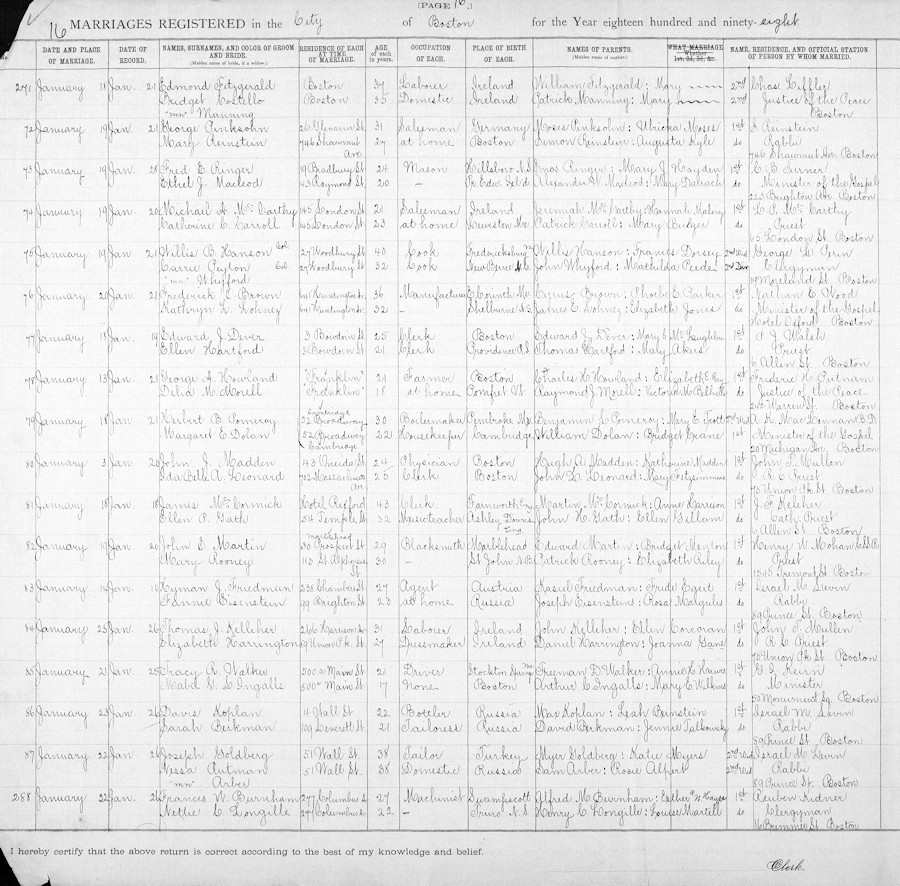 [PAGE 16.]
16 MARRIAGES REGISTERED in the City of Boston for the Year eighteen hundred and ninety-eight
DATE AND PLACE OF MARRIAGE. DATE OF RECORD. NAMES, SURNAMES, AND COLOR OF GROOM AND BRIDE. (Maiden name of bride, if a widow.) RESIDENCE OF EACH AT TIME OF MARRIAGE. AGE of each in years. OCCUPATION OF EACH. PLACE OF BIRTH OF EACH. NAMES OF PARENTS. (Maiden name of mother.) WHAT MARRIAGE Whether 1st, 2d, 3d, &c. NAME, RESIDENCE, AND OFFICIAL STATION OF PERSON BY WHOM MARRIED.
271 January 18 Jan. 21 Edmond Fitzgerald Boston 37 Laborer Ireland William Fitzgerald : Mary 2nd Chas. Leffler
Bridget Costello Boston 35 Domestic Ireland Patrick Manning : Mary 2nd Justice of the Peace
Manning Boston
72 January 19 Jan. 21 George Pinksohn 26 St. 31 Salesman Germany Moses Pinksohn : Ulricka Moses 1st Reinstein
Mary Reinstein 746 Shawmut Ave. 27 at home Boston Simon Reinstein : Augusta Kyle do Rabbi
746 Shawmut Av. Boston
73 January 19 Jan. 28 Fred E. Ringer 19 Bradbury St. 24 Mason Hillsboro N.S. Enos Ringer : Mary J. Hayden 1st
Ethel J. Macleod 43 Raymond St. 20 - Pr. Edw. Isl'd Alexander Macleod : Mary Darrach do Minister of the Gospel
223 Brighton Av. Boston
74 January 19 Jan. 20 Michael A. McCarthy 145 London St. 21 Salesman Ireland Jeremiah McCarthy : Hannah 1st L. P. McCarthy
Catherine C. Carroll 143 London St. 23 at home Patrick Carroll : Mary do Priest
65 London St. Boston
75 January 19 Jan. 21 Willis B. Hanson Col. 27 Woodbury St. 40 Cook Fredericksburg Willis Hanson : Frances Dorsey 2nd George L. Perin
Carrie Peyton Col. 27 Woodbury St. 32 Cook New Berne N.C. John Whyford : Mathilda 2nd Clergyman
Whyford Moreland St. Boston
76 January 20 Jan. 21 Frederick L. Brown 641 Huntington Av. 36 Manufacturer Cyrus Brown : Phoebe E. Parker 1st Nathan E. Wood
Kathryn L. Lohney 641 Huntington Av. 32 - Shelburne N.S. James E. Lohney : Elizabeth Jones do Minister of the Gospel
Hotel Oxford Boston
77 January 18 Jan. 19 Edward J. Dever 3 Bowdoin St. 25 Clerk Boston Edward J. Dever : Mary McLaughlin 1st Walsh
Ellen Hartford 3 Bowdoin St. 21 Clerk Providence Thomas Hartford : Mary Akers do Priest
6 Allen St. Boston
78 January 13 Jan. 21 George A. Howland "Franklin" 21 Farmer Boston Charles H. Howland : Elizabeth E. 1st Frederic H. Putnam
Delia M. Morell Franklin 18 at home Pomfret Vt. Raymond J. Morell : Victoria do Justice of the Peace
212 Warren St. Boston
79 January 18 Jan. 21 Herbert B. Pomeroy Cambridge 52 Broadway 30 Boilermaker Pembroke Me. Benjamin L. Pomeroy : Mary E. 2nd A. K. MacLennan B.D.
Margaret E. Dolan 52 Broadway Cambridge 22 Housekeeper Cambridge William Dolan : Bridget Keane 1st Minister of the Gospel
20 Michigan Av. Boston
80 January 3 Jan. 20 John J. Madden 43 Oneida St. 24 Physician Boston Hugh A. Madden : Katherine Madden 1st John J. Mullen
Ida Belle A. Leonard 702 Massachusetts Av. 25 Clerk Boston John L. Leonard : Mary Fitzsimmons do R.C. Priest
75 Union Pk. St. Boston
81 January 18 Jan. 18 James McCormick Hotel Rexford 43 Clerk Farnworth Eng. Martin McCormick : Anne Garrison 1st J. F. Keleher
Ellen P. Gath 54 Temple St. 32 Music teacher Ashley Down Eng. John H. Gath : Ellen Gillam do Cath. Priest
Allen St. Boston
82 January 19 Jan. 20 John E. Martin Marblehead 30 Prospect St. 29 Blacksmith Marblehead Edward Martin : Bridget Menton 1st Henry W. Mohan C.SS.R.
Mary Rooney 113 St. Alphonsus St. 30 - St. John N.B. Patrick Rooney : Elizabeth Riley do Priest
1545 Tremont St. Boston
83 January 14 Jan. 19 Hyman J. Friedman 238 Chambers St. 27 Agent Austria Kasiel Friedman : Frude Egert 1st Israel M. Levin
Fannie Eisenstein 99 Brighton St. 23 at home Russia Joseph Eisenstein : Rosa Malgulis do Rabbi
89 Prince St. Boston
84 January 25 Jan. 26 Thomas J. Kelliher 266 Harrison Av. 31 Laborer Ireland John Kelliher : Ellen Corcoran 1st John J. Mullen
Elizabeth Harrington 69 Union Pk. St. 27 Dressmaker Ireland Daniel Harrington : Joanna Gane do R.C. Priest
75 Union Pk. St. Boston
85 January 21 Jan. 25 Tracy R. Walker 500a Main St. 21 Driver Stockton Springs Me. Freeman D. Walker : Annie H. Hawes 1st
Mabel G. L. Ingalls 500a Main St. 17 None Boston Arthur E. Ingalls : Mary E. Wilkins do Minister
50 Monument Sq. Boston
86 January 23 Jan. 26 Davis Koplan 4 Wall St. 22 Bottler Russia Max Koplan : Leah Bernstein 1st Israel M. Levin
Sarah Berkman 109 Leverett St. 21 Tailoress Russia David Berkman : Jennie Talkowsky do Rabbi
89 Prince St. Boston
87 January 22 Jan. 26 Joseph Goldberg 51 Wall St. 38 Tailor Turkey Myer Goldberg : Katie Myers 2nd Israel M. Levin
Nessa Rutman 51 Wall St. 38 Domestic Russia Sam Arber : Rosie Alpert 2nd Rabbi
Arber 89 Prince St. Boston
288 January 22 Jan. 26 Frances W. Burnham 277 Columbus Av. 27 Machinist Swampscott Alfred M. Burnham : Esther 1st Reuben Kidner
Nettie C. Longille 277 Columbus Av. 22 - Truro N.S. Henry C. Longille : Louise Martell do Clergyman
16 Brimmer St. Boston
I hereby certify that the above return is correct according to the best of my knowledge and belief.
Clerk.